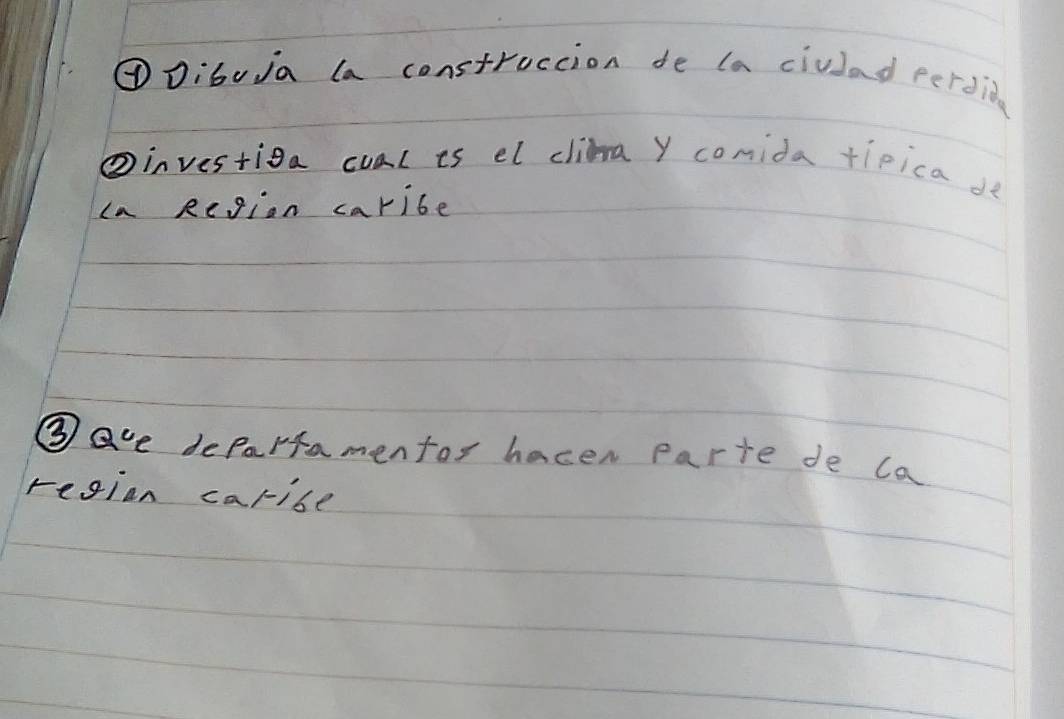 ① Dibuja la construccion de la ciudad perdida
② investiga cual es el clima y comida tipica de
la Region caribe
③ Que departamentos hacen parte de la
region caribe